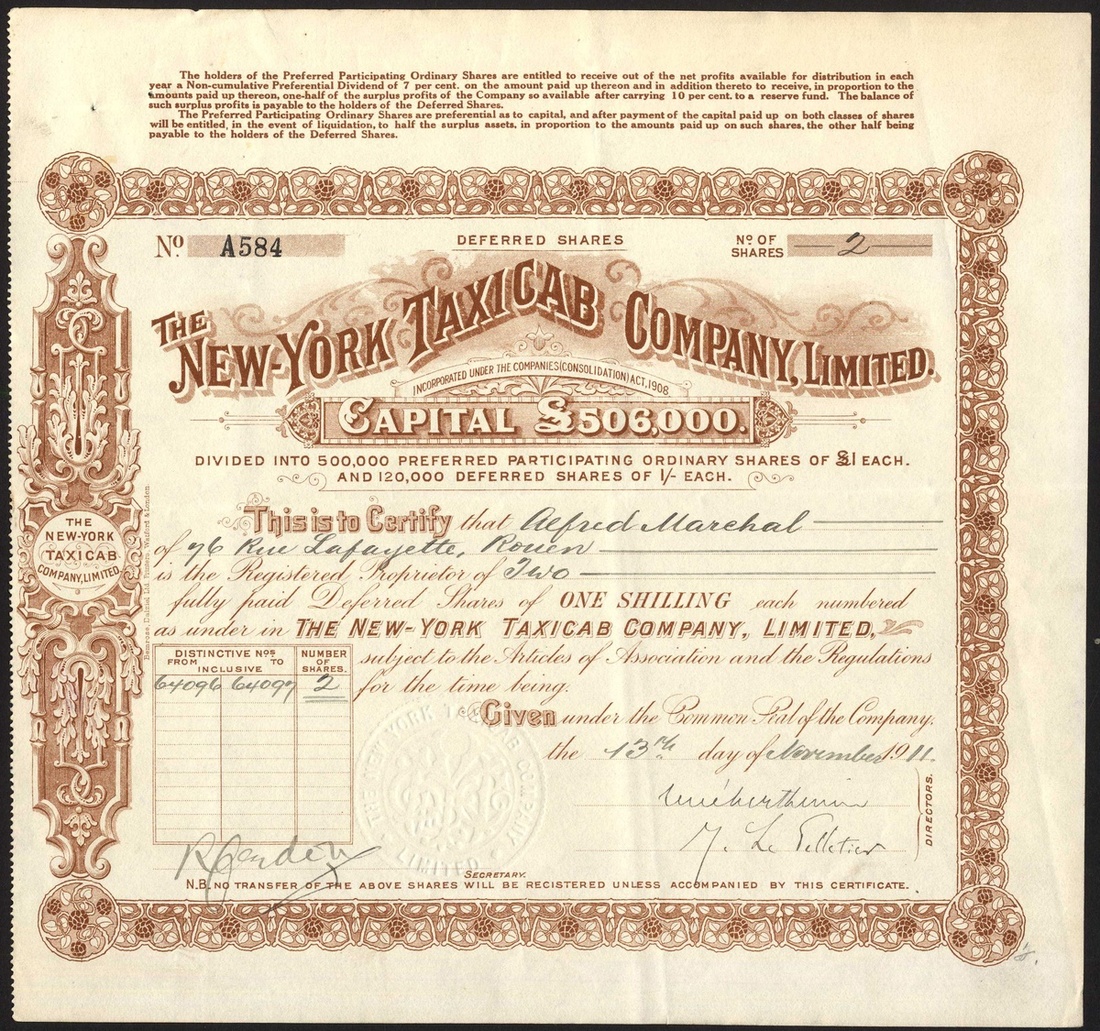 The holders of the Preferred Participating Ordinary Shares are entitled to receive out of the net profits available for distribution in each
year a Non-cumulative Preferential Dividend of 7 per cent. on the amount paid up thereon and in addition thereto to receive, in proportion to the
amounts paid up thereon, one-half of the surplus profits of the Company so available after carrying 10 per cent. to a reserve fund. The balance of
such surplus profits is payable to the holders of the Deferred Shares.
The Preferred Participating Ordinary Shares are preferential as to capital, and after payment of the capital paid up on both classes of shares
will be entitled, in the event of liquidation, to half the surplus assets, in proportion to the amounts paid up on such shares, the other half being
payable to the holders of the Deferred Shares.
No. A584
DEFERRED SHARES
No. OF SHARES 2
THE NEW-YORK TAXICAB COMPANY, LIMITED.
INCORPORATED UNDER THE COMPANIES (CONSOLIDATION) ACT, 1908
CAPITAL £506,000.
DIVIDED INTO 500,000 PREFERRED PARTICIPATING ORDINARY SHARES OF £1 EACH.
AND 120,000 DEFERRED SHARES OF 1/- EACH.
This is to Certify that Alfred Marchal
of 76 Rue Lafayette, Rouen
is the Registered Proprietor of Two
fully paid Deferred Shares of ONE SHILLING each numbered
as under in THE NEW-YORK TAXICAB COMPANY, LIMITED,
subject to the Articles of Association and the Regulations
for the time being.
DISTINCTIVE Nos. FROM INCLUSIVE TO
NUMBER OF SHARES.
64096 64097 2
Given under the Common Seal of the Company.
the 13th day of November 1911.
THE NEW-YORK TAXICAB COMPANY LIMITED
M. Le Pelletier
DIRECTORS.
SECRETARY.
N.B. NO TRANSFER OF THE ABOVE SHARES WILL BE REGISTERED UNLESS ACCOMPANIED BY THIS CERTIFICATE.
THE
NEW-YORK
TAXICAB
COMPANY, LIMITED.
Bemrose, Dalziel Ltd. Printers, Watford & London